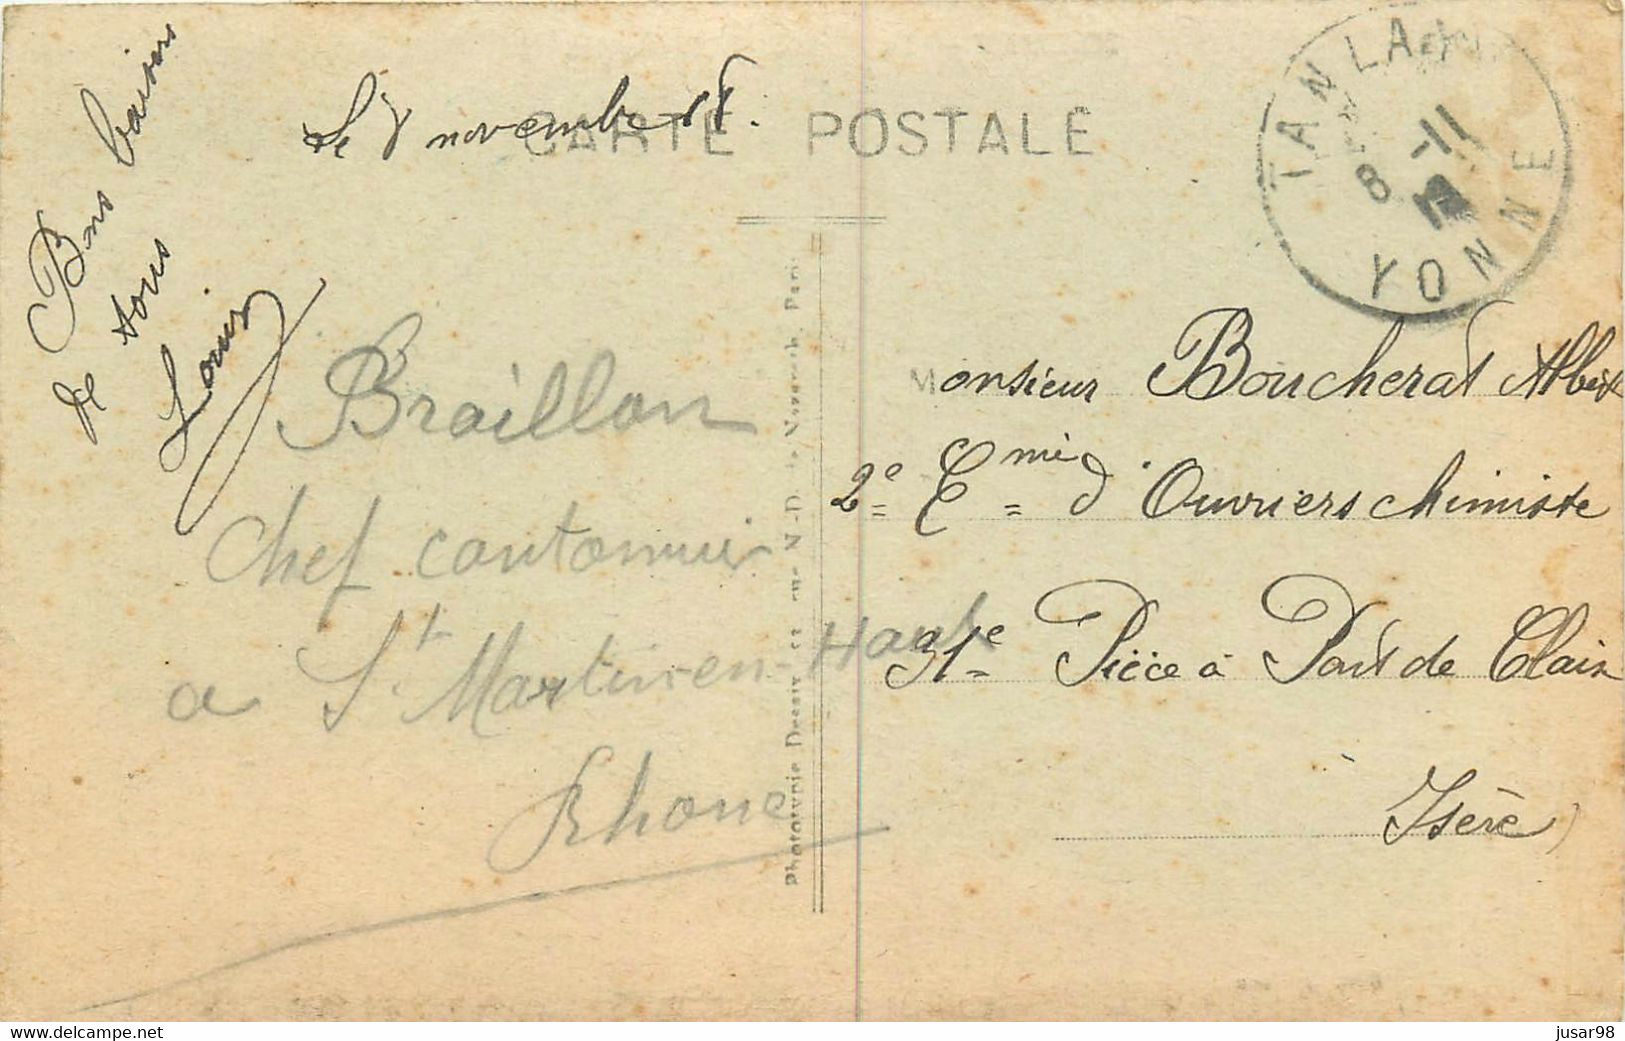 Bons baisers
de tous
Louis
Le 8 novembre 18.
CARTE POSTALE
TANLAY
8 -11
YONNE
Braillon
Chef cantonnier
a St Martin-en-Haut
Rhone
Phototypie Dessaix
Monsieur Boucherat Albert
2e Cme d'Ouvriers chimiste
31e Pièce à Pont de Claix
Isère
www.delcampe.net
jusar98